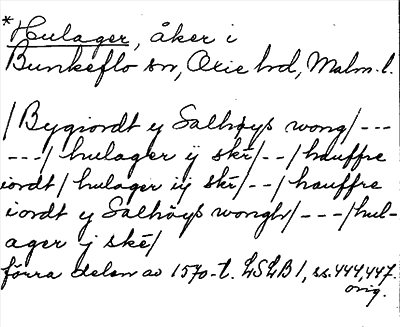 *Hulager, åker i
Bunkeflo sn, Oxie hd, Malm. l.
/Bygiordt y Salhøys wong/---
---/hulager ij skē/--/hauffre
iordt/hulager iij skē/--/hauffre
iordt y Salhöys wongh/---/hul-
ager j skē/
förra delen av 1570-t. LSLB 1, ss. 444, 447.
orig.